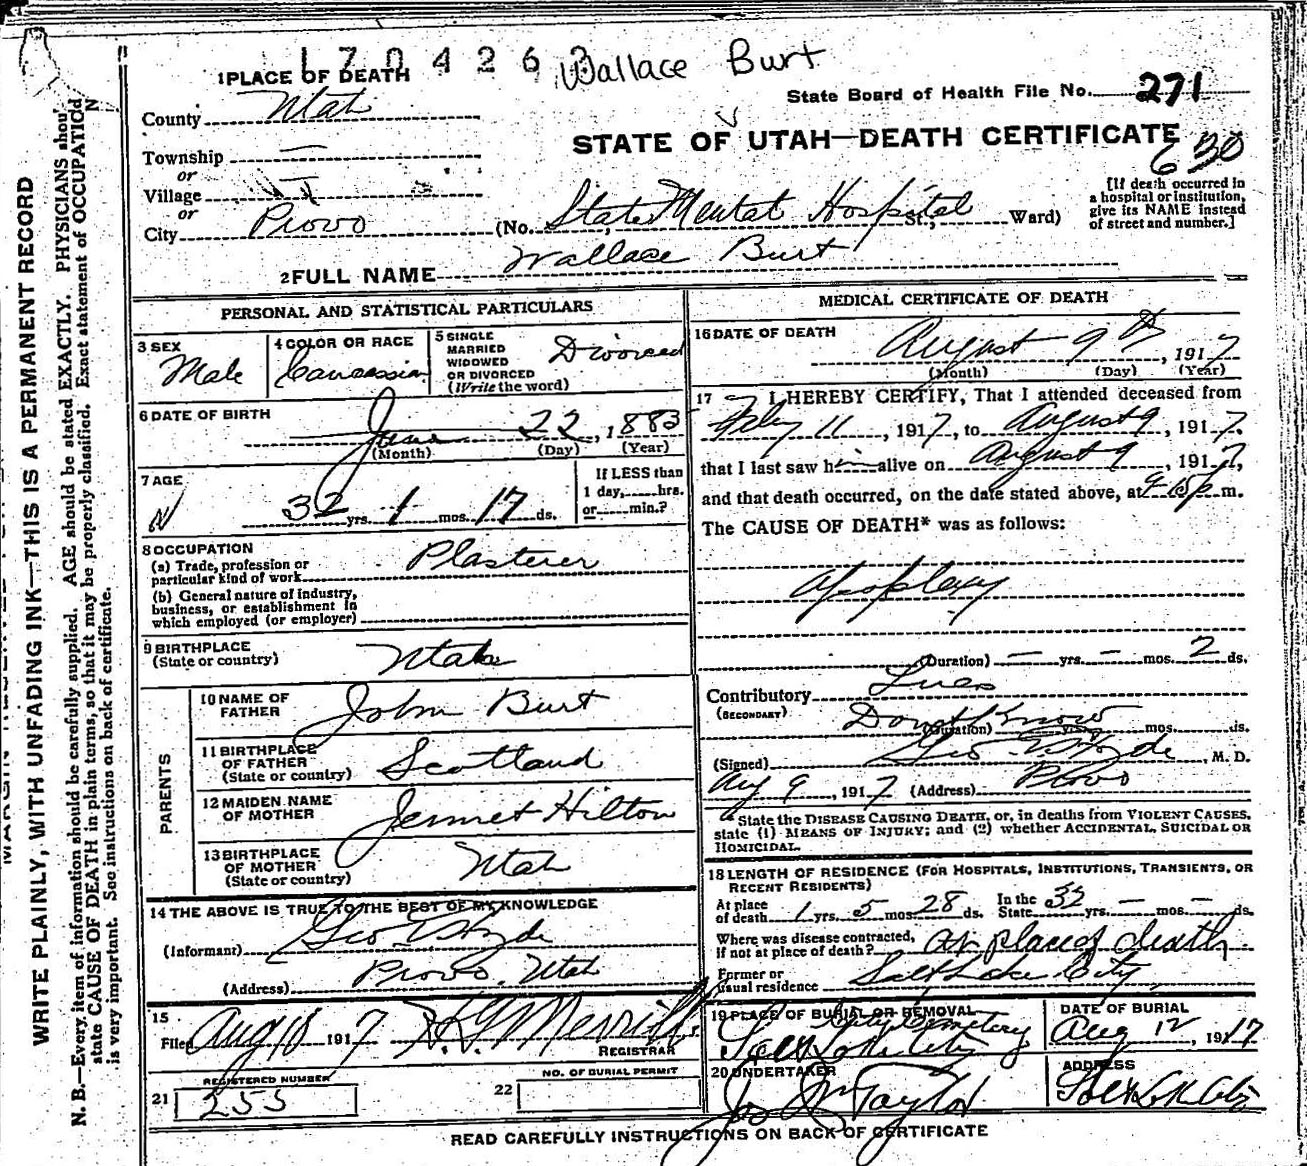 170426 Wallace Burt
1 PLACE OF DEATH
State Board of Health File No. 271
County Utah
STATE OF UTAH—DEATH CERTIFICATE
630
Township —
or
Village
or
City Provo
(No. State Mental Hospital St., Ward)
[If death occurred in
a hospital or institution,
give its NAME instead
of street and number.]
2 FULL NAME Wallace Burt
PERSONAL AND STATISTICAL PARTICULARS
3 SEX
Male
4 COLOR OR RACE
Caucassian
5 SINGLE
MARRIED
WIDOWED
OR DIVORCED
(Write the word)
Divorced
6 DATE OF BIRTH
June 22, 1883
(Month) (Day) (Year)
7 AGE
32 yrs. 1 mos. 17 ds.
If LESS than
1 day, hrs.
or min.?
8 OCCUPATION
(a) Trade, profession or
particular kind of work Plasterer
(b) General nature of industry,
business, or establishment in
which employed (or employer)
9 BIRTHPLACE
(State or country) Utah
PARENTS
10 NAME OF
FATHER John Burt
11 BIRTHPLACE
OF FATHER
(State or country) Scotland
12 MAIDEN NAME
OF MOTHER Jennet Hilton
13 BIRTHPLACE
OF MOTHER
(State or country) Utah
14 THE ABOVE IS TRUE TO THE BEST OF MY KNOWLEDGE
(Informant) Geo E Hyde
(Address) Provo, Utah
15
Filed Aug 10 1917 Merrill
REGISTRAR
REGISTERED NUMBER
21 255
NO. OF BURIAL PERMIT
22
MEDICAL CERTIFICATE OF DEATH
16 DATE OF DEATH
August 9th, 1917
(Month) (Day) (Year)
17 I HEREBY CERTIFY, That I attended deceased from
Feby 11, 1917, to August 9, 1917,
that I last saw him alive on August 9, 1917,
and that death occurred, on the date stated above, at 9-15 p m.
The CAUSE OF DEATH* was as follows:
Apoplexy
(Duration) — yrs. — mos. 2 ds.
Contributory Lues
(SECONDARY)
Don't Know
(Duration) yrs. mos. ds.
(Signed) Geo E Hyde, M. D.
Aug 9, 1917 (Address) Provo
*State the DISEASE CAUSING DEATH, or, in deaths from VIOLENT CAUSES,
state (1) MEANS OF INJURY; and (2) whether ACCIDENTAL, SUICIDAL OR
HOMICIDAL.
18 LENGTH OF RESIDENCE (FOR HOSPITALS, INSTITUTIONS, TRANSIENTS, OR
RECENT RESIDENTS)
At place
of death 1 yrs. 5 mos. 28 ds. In the
State 32 yrs. — mos. — ds.
Where was disease contracted,
if not at place of death? At place of death
Former or
usual residence Salt Lake City
19 PLACE OF BURIAL OR REMOVAL
City Cemetery
Salt Lake City
DATE OF BURIAL
Aug 12, 1917
20 UNDERTAKER
Jos Wm Taylor
ADDRESS
Salt Lk City
READ CAREFULLY INSTRUCTIONS ON BACK OF CERTIFICATE
WRITE PLAINLY, WITH UNFADING INK—THIS IS A PERMANENT RECORD
N. B.—Every item of information should be carefully supplied. AGE should be stated EXACTLY. PHYSICIANS shou
state CAUSE OF DEATH in plain terms, so that it may be properly classified. Exact statement of OCCUPATION
is very important. See instructions on back of certificate.